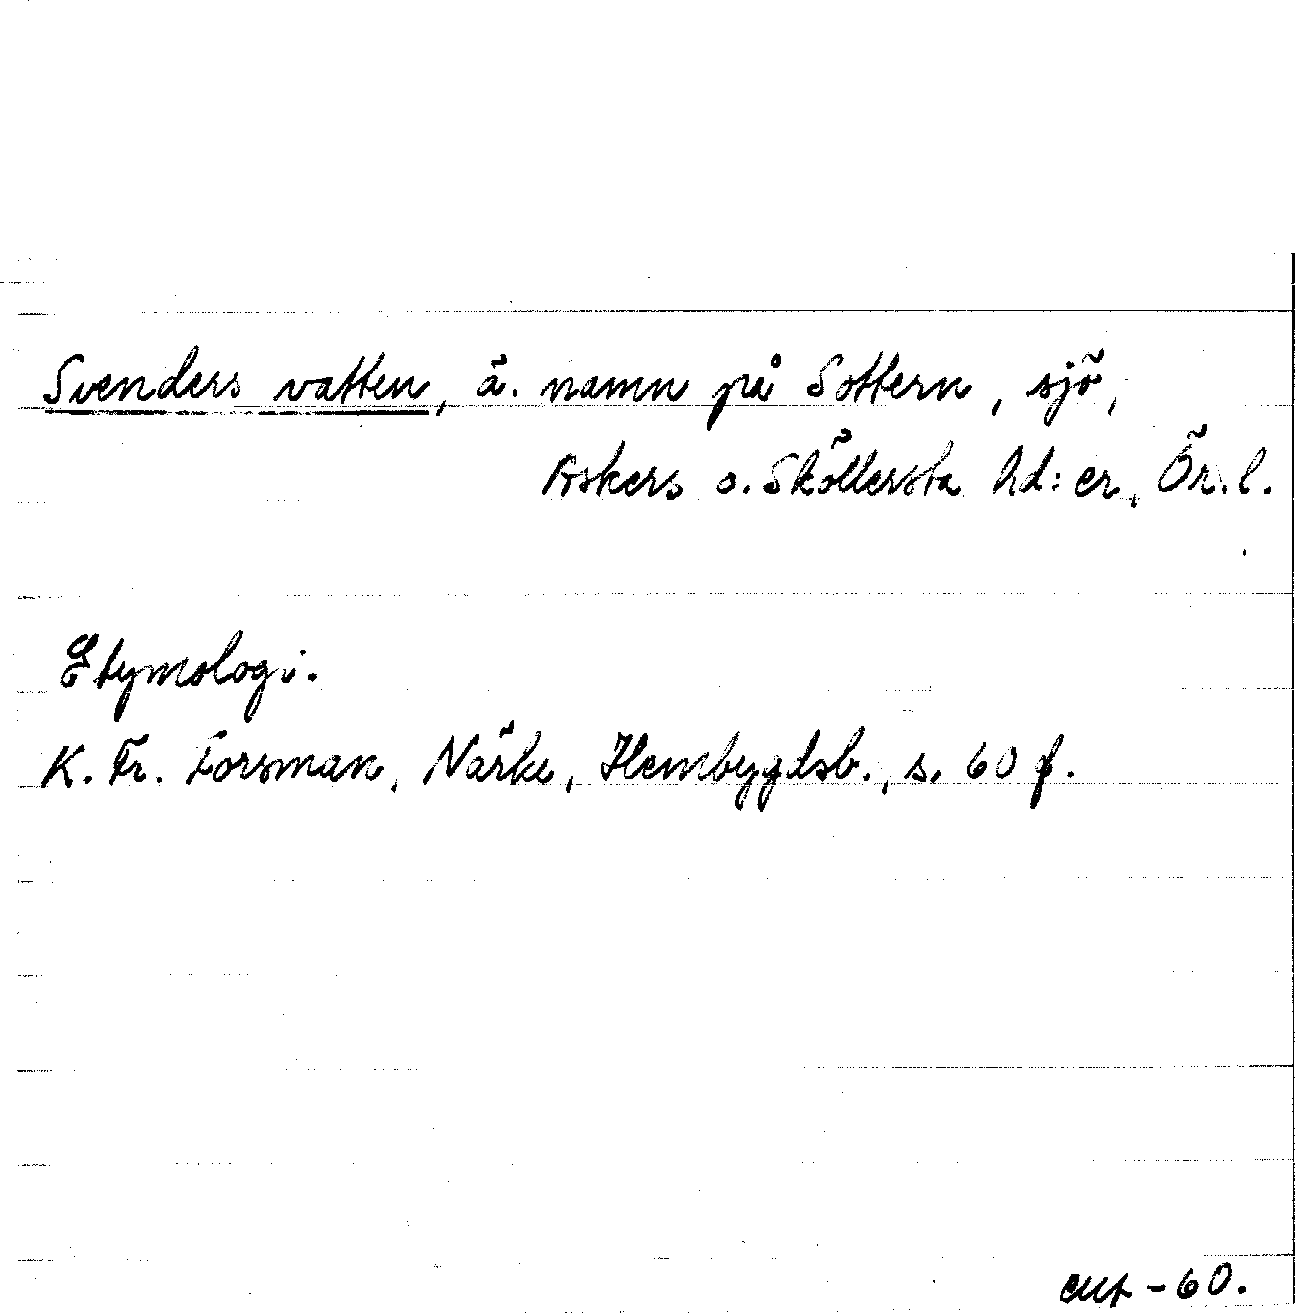 Svenders vatten, ä. namn på Sottern, sjö,
Askers o. Sköllersta hd:er, Ör. l.
Etymologi.
K. Fr. Forsman, Närke, Hembygdsb., s. 60 f.
-60.